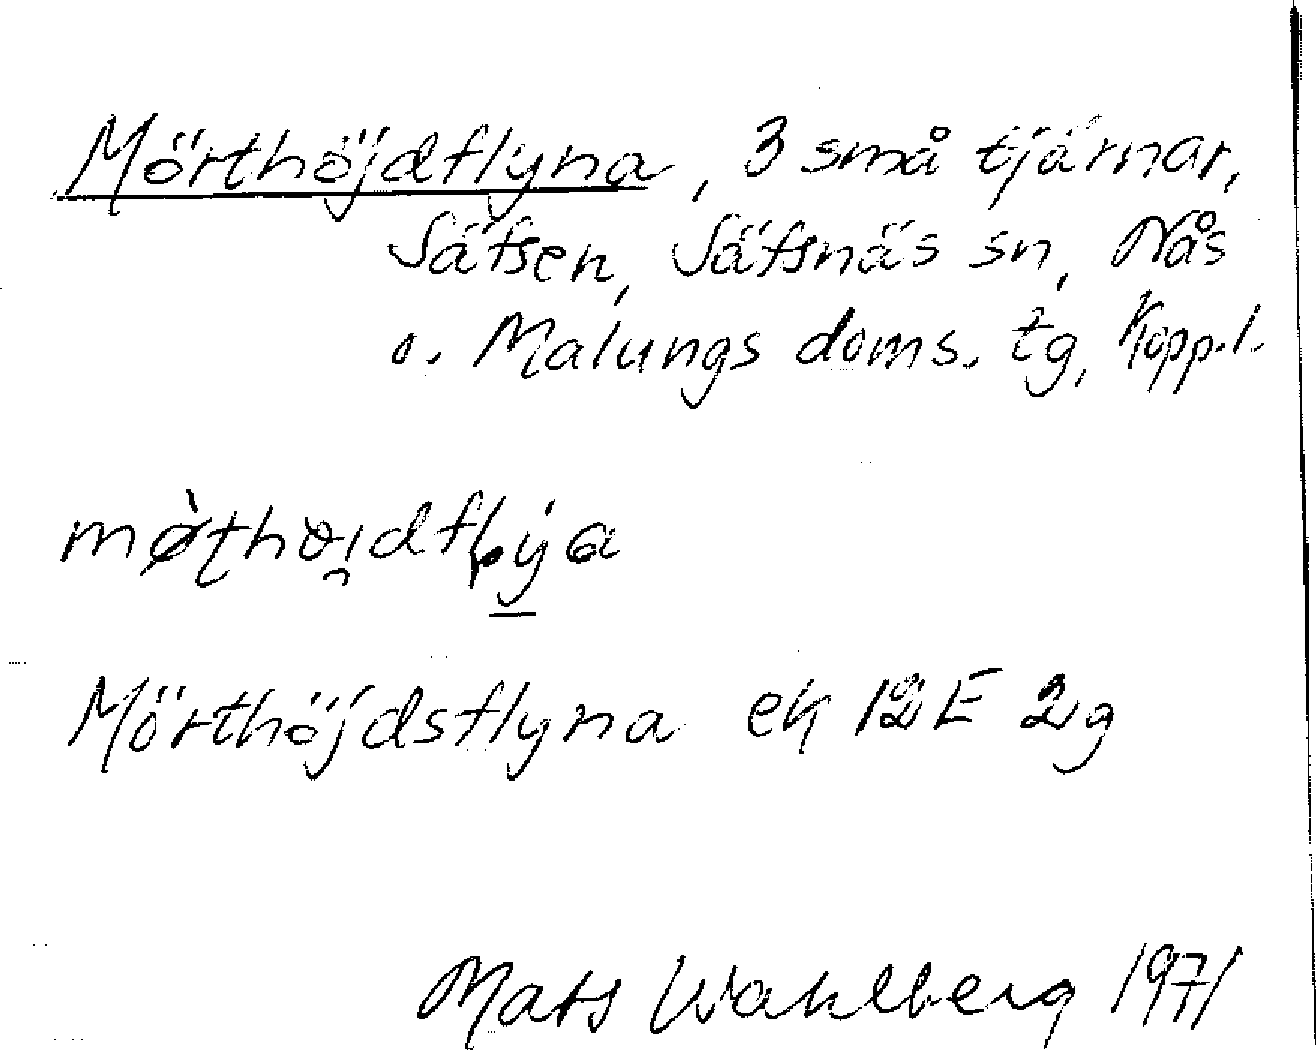 Mörthöjdflyna, 3 små tjärnar,
Säfsen, Säfsnäs sn, Nås
o. Malungs doms. tg, Kopp.l.
Mörthöjdsflyna ek 12E 2g
Mats Wahlberg 1971